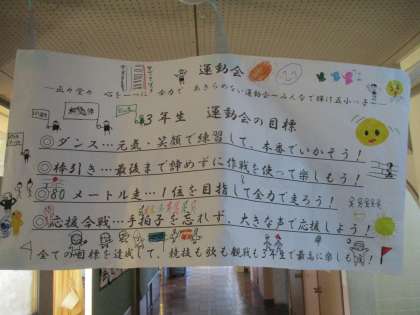 運動会
～正々堂々 心を一つに 全力で あきらめない運動会～みんなで輝け五小っ子～
3年生 運動会の目標
◎ダンス…元気・笑顔で練習して、本番でいかそう！
◎棒引き…最後まで諦めずに作戦を使って楽しもう！
◎80メートル走…1位を目指して全力で走ろう！
◎応援合戦…手拍子を忘れず、大きな声で応援しよう！
全ての目標を達成して、競技も歌も観戦も3年生で最高に楽しも！